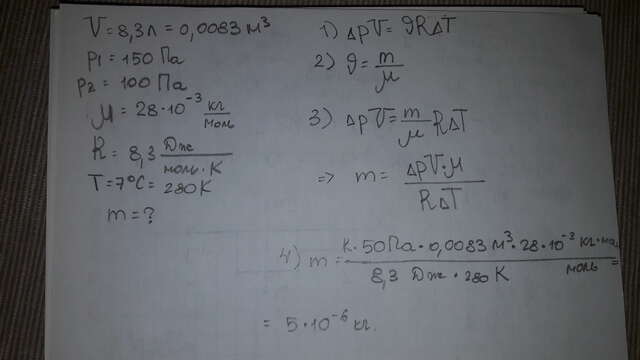 V = 8,3 л = 0,0083 м³
P1 = 150 Па
P2 = 100 Па
M = 28·10⁻³ кг/моль
R = 8,3 Дж/моль·К
T = 7°C = 280 K
m = ?
1) ΔpV = gRΔT
2) g = m/M
3) ΔpV = m/M RΔT
=> m = ΔpV·M/RΔT
4) m = 50 Па·0,0083 м³·28·10⁻³ кг·мо / 8,3 Дж·280 К моль =
= 5·10⁻⁶ кг.